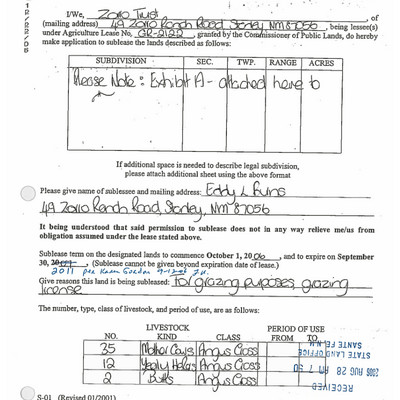 12/22/06
I/We, Zorro Trust, of
(mailing address) 49 Zorro Ranch Road, Stanley, NM 87056, being lessee(s)
under Agriculture Lease No. GR-2122, granted by the Commissioner of Public Lands, do hereby
make application to sublease the lands described as follows:
SUBDIVISION SEC. TWP. RANGE ACRES
Please Note: Exhibit A - attached here to
If additional space is needed to describe legal subdivision,
please attach additional sheet using the above format
Please give name of sublessee and mailing address: Eddy L
49 Zorro Ranch Road, Stanley, NM 87056
It being understood that said permission to sublease does not in any way relieve me/us from
obligation assumed under the lease stated above.
Sublease term on the designated lands to commence October 1, 2006, and to expire on September
30, (Sublease cannot be given beyond expiration date of lease.)
2011 per
Give reasons this land is being subleased: for grazing purposes, grazing
license
The number, type, class of livestock, and period of use, are as follows:
LIVESTOCK PERIOD OF USE
NO. KIND CLASS FROM TO
35 Mother Cows Angus Cross
12 Angus Cross
2 Bulls Angus Cross
RECEIVED
2006 AUG 28 AM 7 50
STATE LAND OFFICE
SANTE FE, N.M.
S-01 (Revised 01/2001)